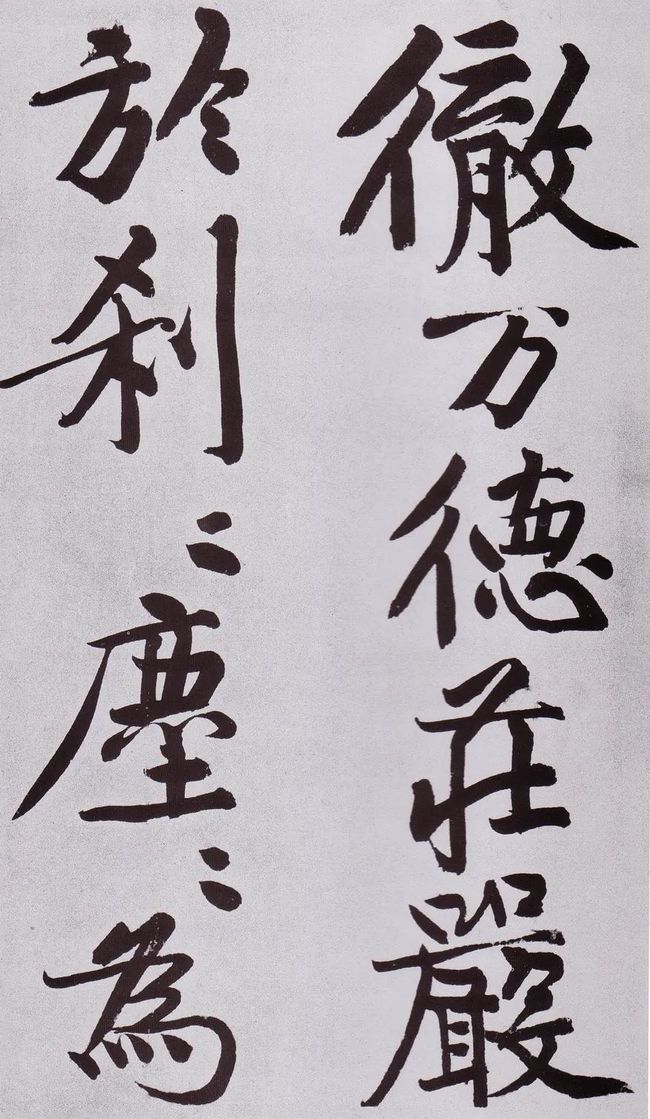 徹万德莊嚴
於刹〻塵〻為